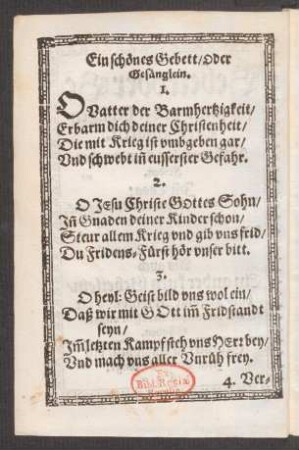 Ein schönes Gebett/ Oder
Gesänglein.
1.
O Vatter der Barmhertzigkeit/
Erbarm dich deiner Christenheit/
Die mit Krieg ist vmbgeben gar/
Vnd schwebt in eusserster Gefahr.
2.
O JEsu Christe GOttes Sohn/
Jñ Gnaden deiner Kinder schon/
Steur allem Krieg vnd gib vns frid/
Du Fridens-Fürst hör vnser bitt.
3.
O heyl: Geist bild vns wol ein/
Daß wir mit GOtt im̃ Fridstandt
seyn/
Jm̃ letzten Kampff steh vns Hertz bey/
Vnd mach vns aller Vnrüh frey.
4. Ver-